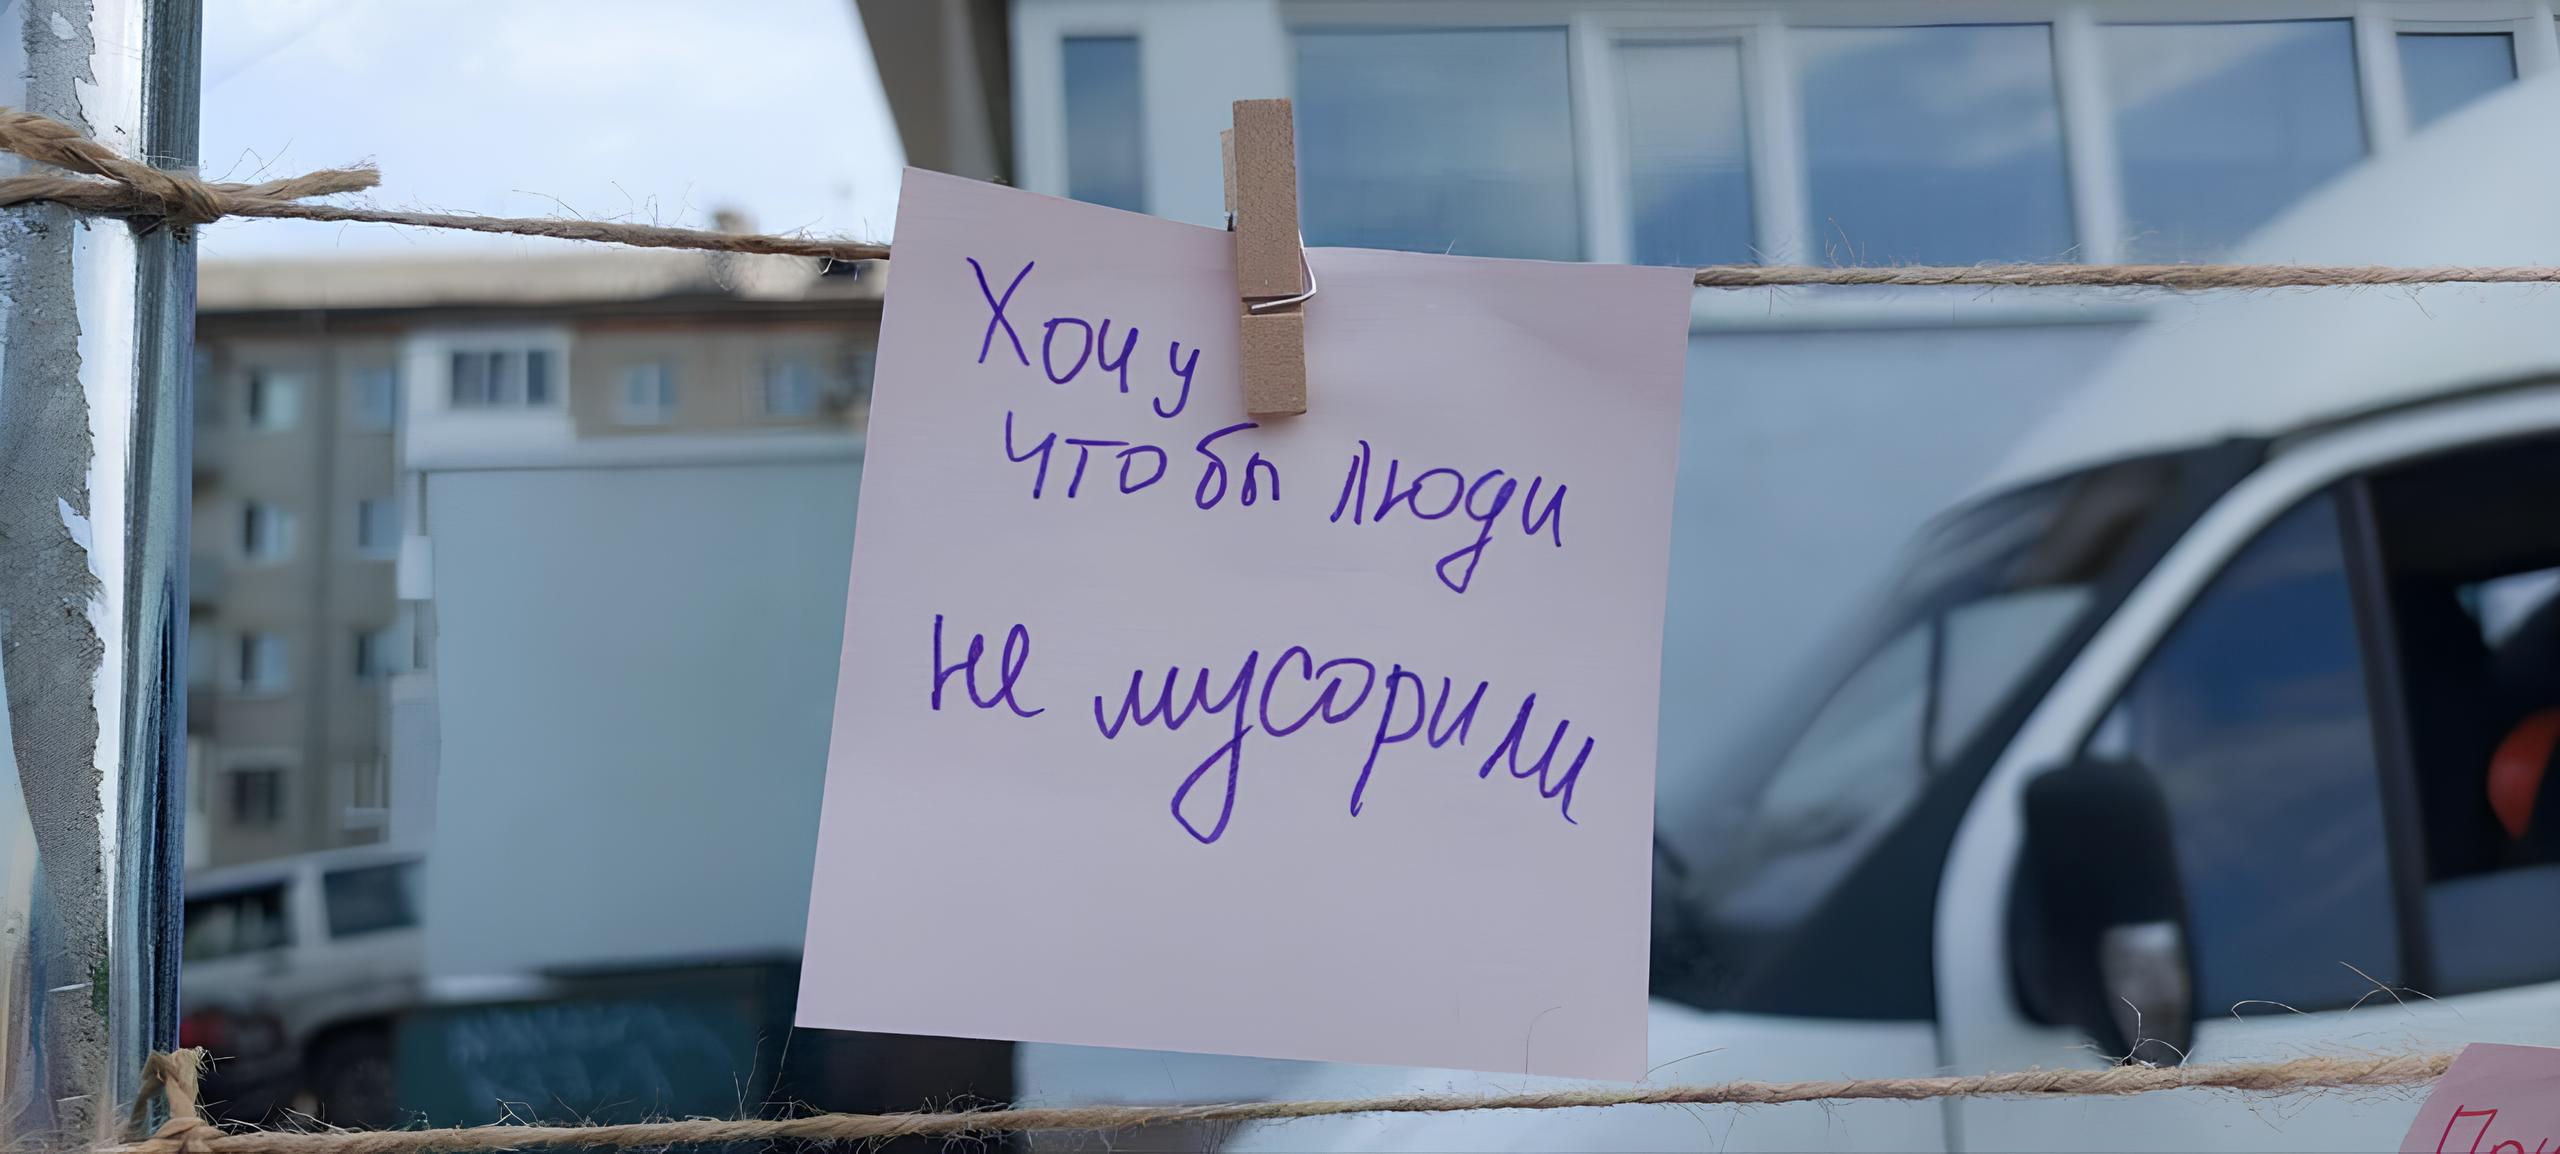 Хочу
чтобы люди
не мусорили